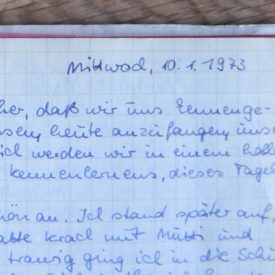 Mittwoch, 10.1.1973
her, daß wir uns kennenge-
ssen, heute anzufangen, uns
ich werden wir in einem hal
kennenlernens, dieses Tage
hön an. Ich stand später auf
atte krach mit Mutti und
traurig ging ich in die Sch